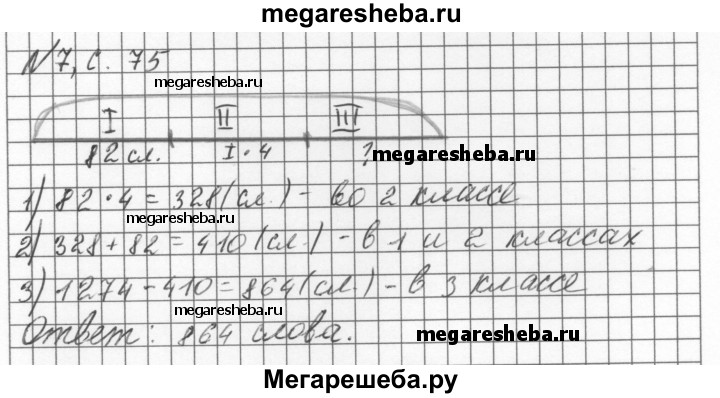 megaresheba.ru
№7, с. 75
megaresheba.ru
I II III
82 сл. I · 4 ?
megaresheba.ru
1) 82 · 4 = 328 (сл.) - во 2 классе
megaresheba.ru
2) 328 + 82 = 410 (сл.) - в 1 и 2 классах
3) 1274 - 410 = 864 (сл.) - в 3 классе
megaresheba.ru
Ответ: 864 слова.
megaresheba.ru
Мегарешеба.ру